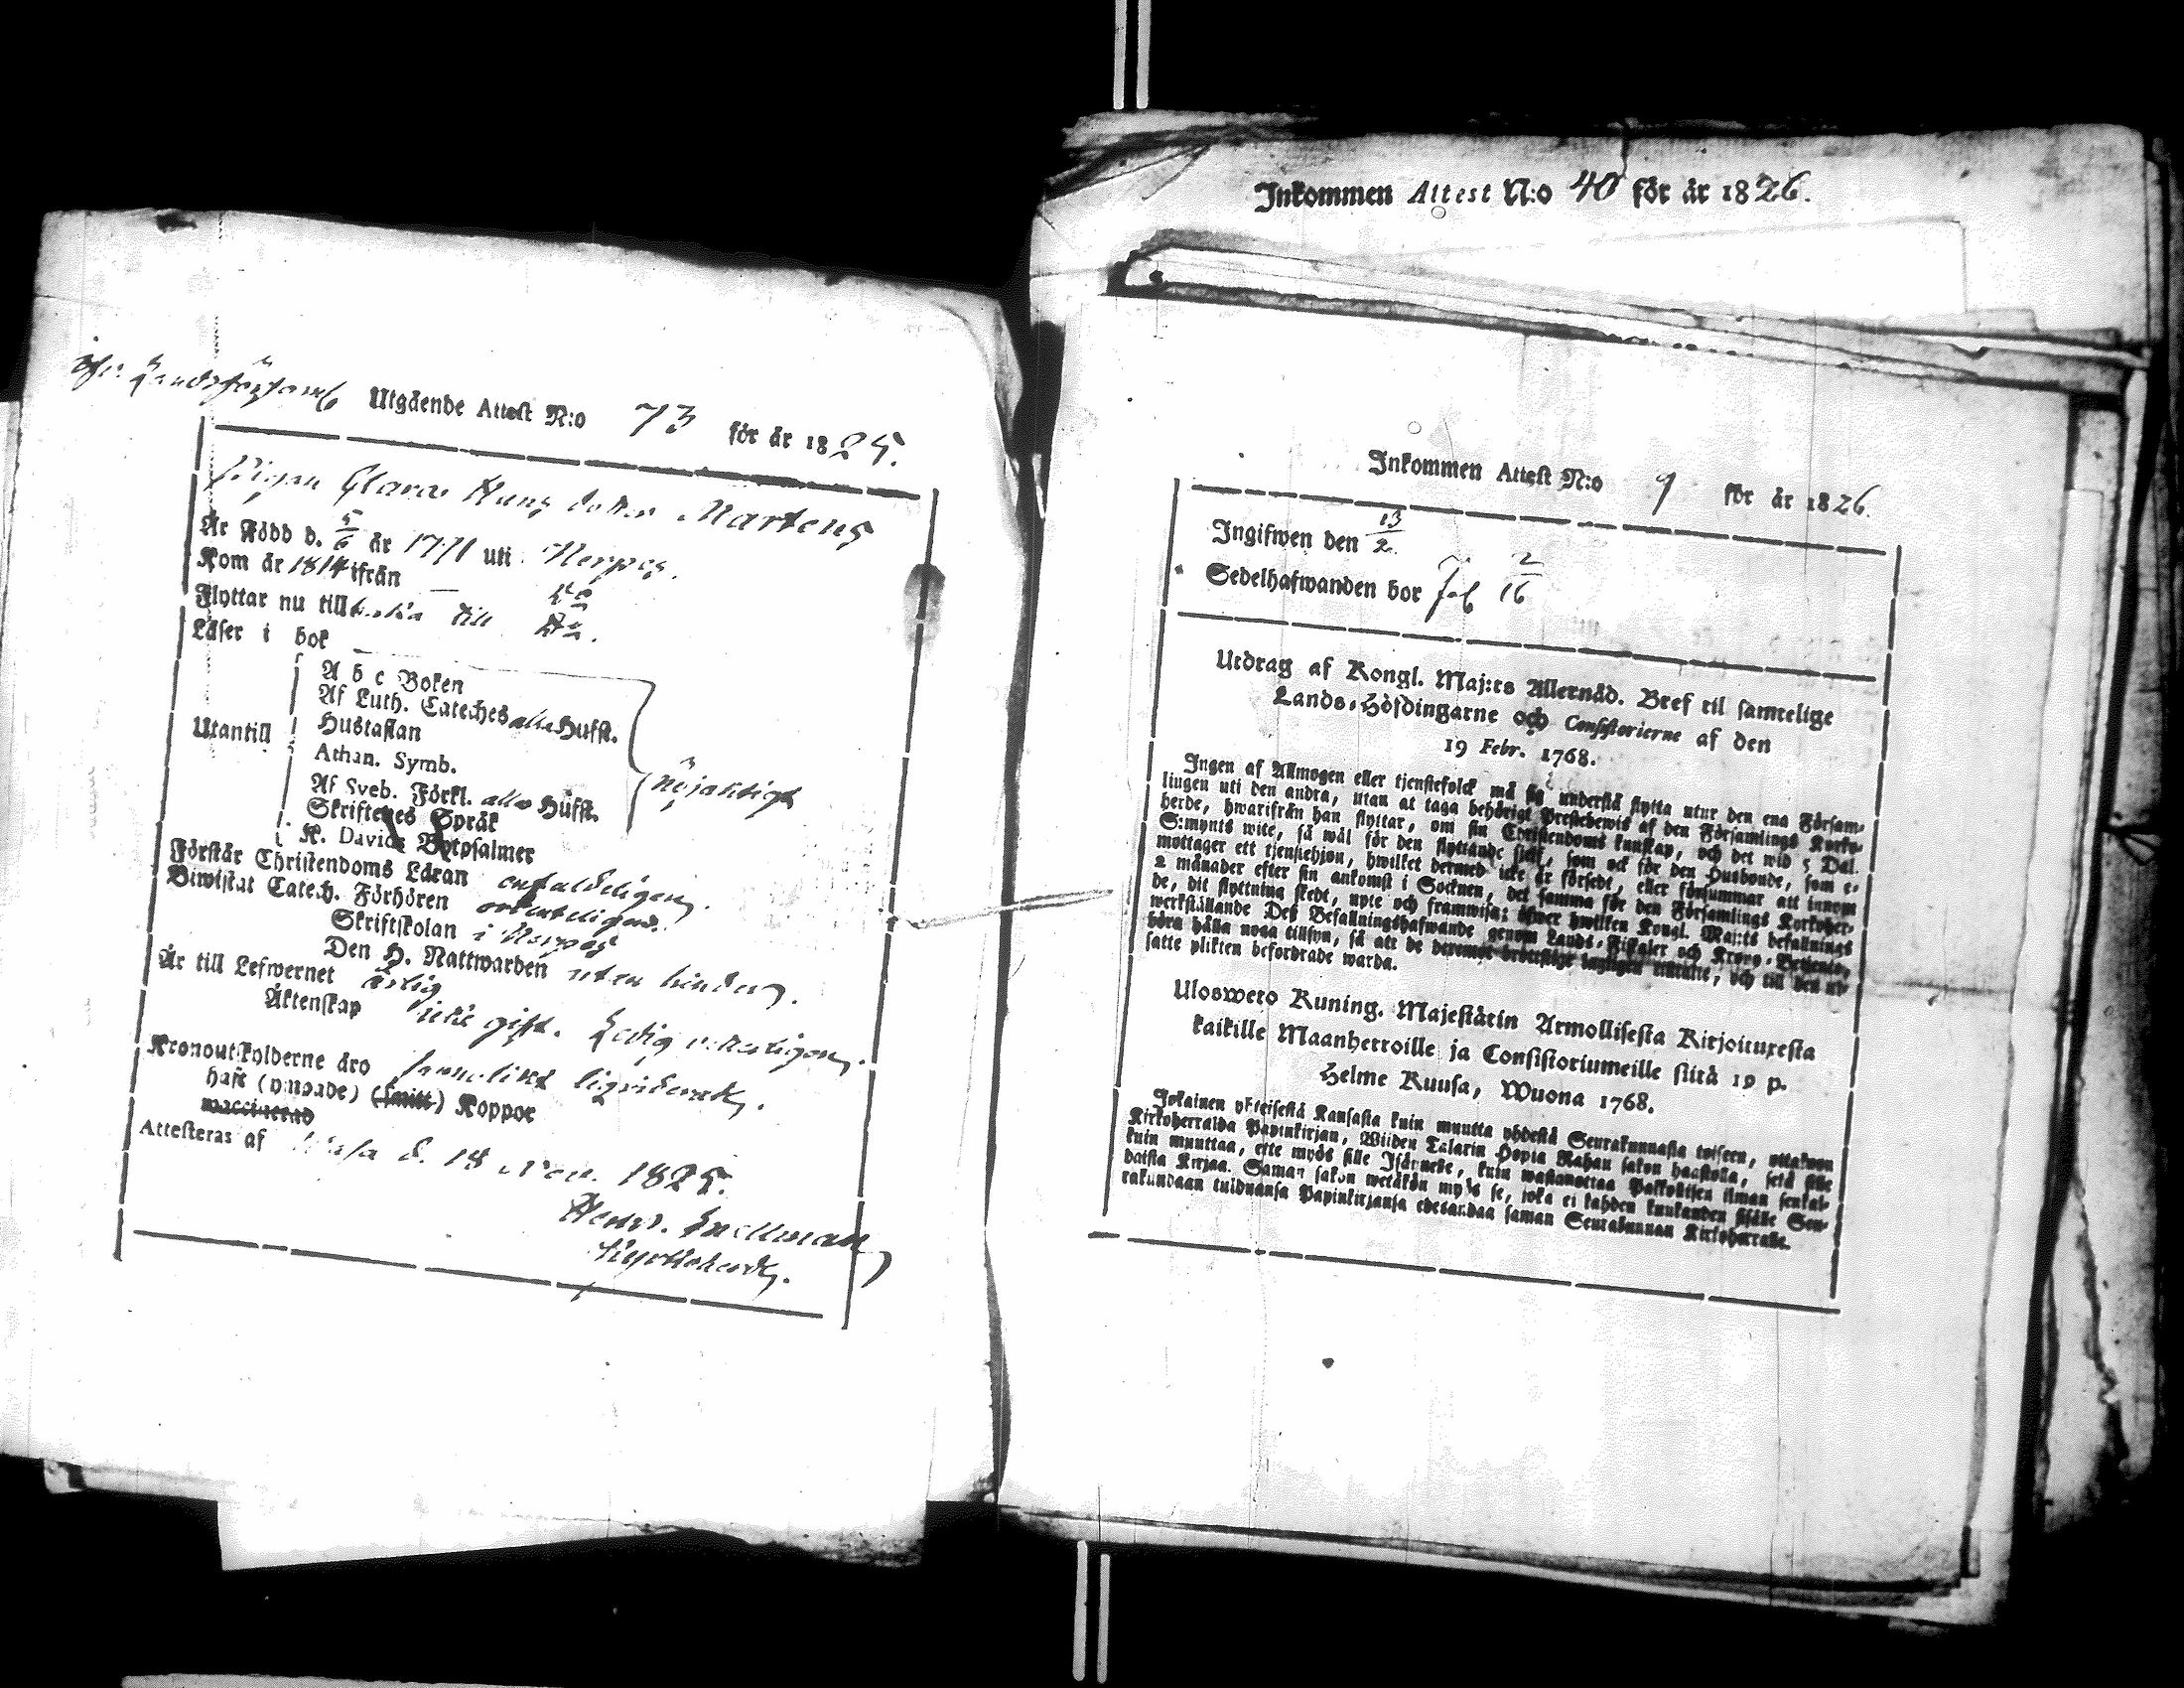 Utgående Attest N:o 73 för år 1825.
Pigan Clara Hans dotter Martens
Är Född d. 5/6 år 1771 uti Nerpes.
Kom år 1814 ifrån — do
Flyttar nu till baka till do.
Läser i bok
Utantill
A b c Boken
Af Luth. Cateches alla Hufst.
Hustaflan
Athan. Symb.
Af Sveb. Förkl. alla Hufst.
Skriftenes Språk
K. Davids Botpsalmer
nöjaktigt
Förstår Christendoms Läran enfaldeligen.
Biwistat Catech. Förhören ordenteligen.
Skriftskolan i Nerpes
Den H. Nattwarden utan hinder.
Är till Lefwernet ärlig
Äktenskap icke gift. Ledig
Kronoutskylderne äro liqviderade.
haft (vaccinerade) (smitt) Koppor
vaccinerad
Attesteras af Wasa d. 18 Nov. 1825.
Snellman
Kyrkoherde.
Inkommen Attest N:o 40 för år 1826.
Inkommen Attest N:o 9 för år 1826.
Ingifwen den 13/2.
Sedelhafwanden bor 2/16
Utdrag af Kongl. Maj:ts Allernåd. Bref til samtelige
Lands-Höfdingarne och Consistorierne af den
19 Febr. 1768.
Ingen af Allmogen eller tjenstefolck må sig understå flytta utur den ena Försam-
lingen uti den andra, utan at taga behörigt Prestebewis af den Församlings Kyrko-
herde, hwarifrån han flyttar, om sin Christendoms kunskap, och det wid 5 Dal.
S:mynts wite, så wäl för den flyttande sielf, som ock för den Husbonde, som e-
mottager ett tjenstehjon, hwilket dermed icke är försedt, eller försummar att innom
2 månader efter sin ankomst i Socknen, det samma för den Församlings Kyrkoher-
de, dit flyttning skedt, upte och framwisa; öfwer hwilken Kongl. Maj:ts befallnings
werkställande Deß Befallningshafwande genom Lands-Fiskaler och Krono-Betiente,
böra hålla noga tillsyn, så att de deremot brottslige lagligen tilltalte, och till den ut-
satte plikten befordrade warda.
Ulosweto Kuning. Majestätin Armollisesta Kirjoituxesta
kaikille Maanherroille ja Consistoriumeille siitä 19 p.
Helme Kuusa, Wuona 1768.
Jokainen yhteisestä Kansasta kuin muutta yhdestä Seurakunnasta toiseen, ottakoon
Kirkoherralda Papinkirjan, Wiiden Talarin Hopia Rahan sakon haastolla, sekä sille
kuin muuttaa, ette myös sille Isännelle, kuin wastanottaa Palkollisen ilman senkal-
daista Kirjaa. Saman sakon wetäkön myös se, joka ei kahden kuukauden sisälle Seu-
rakundaan tulduansa Papinkirjansa edesandaa saman Seurakunnan Kirkoherralle.